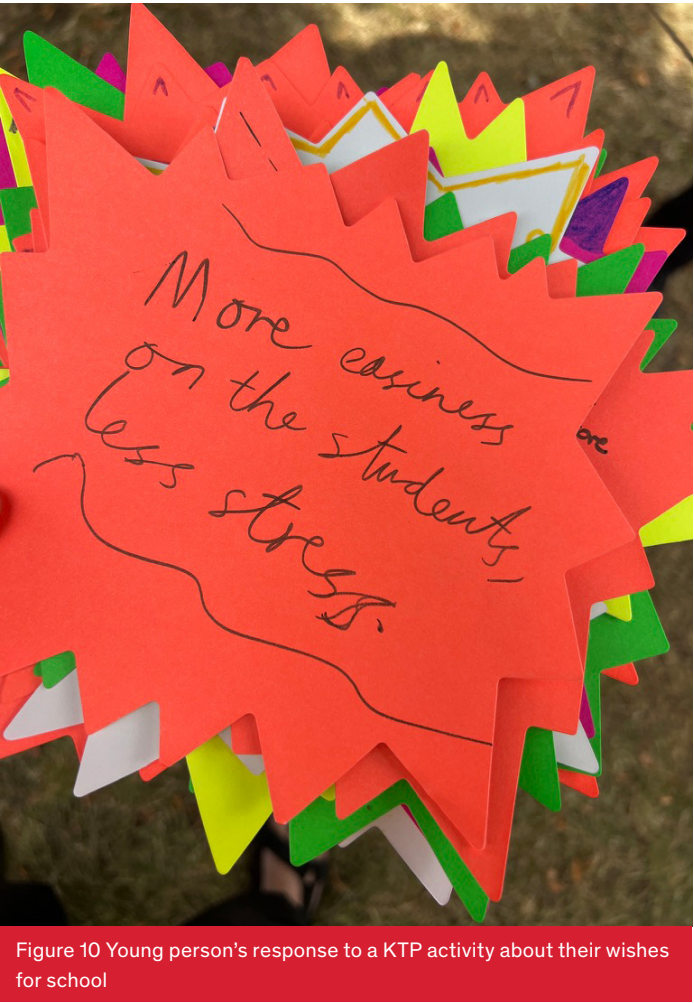 More easiness
on the students,
less stress.
ore
Figure 10 Young person's response to a KTP activity about their wishes
for school